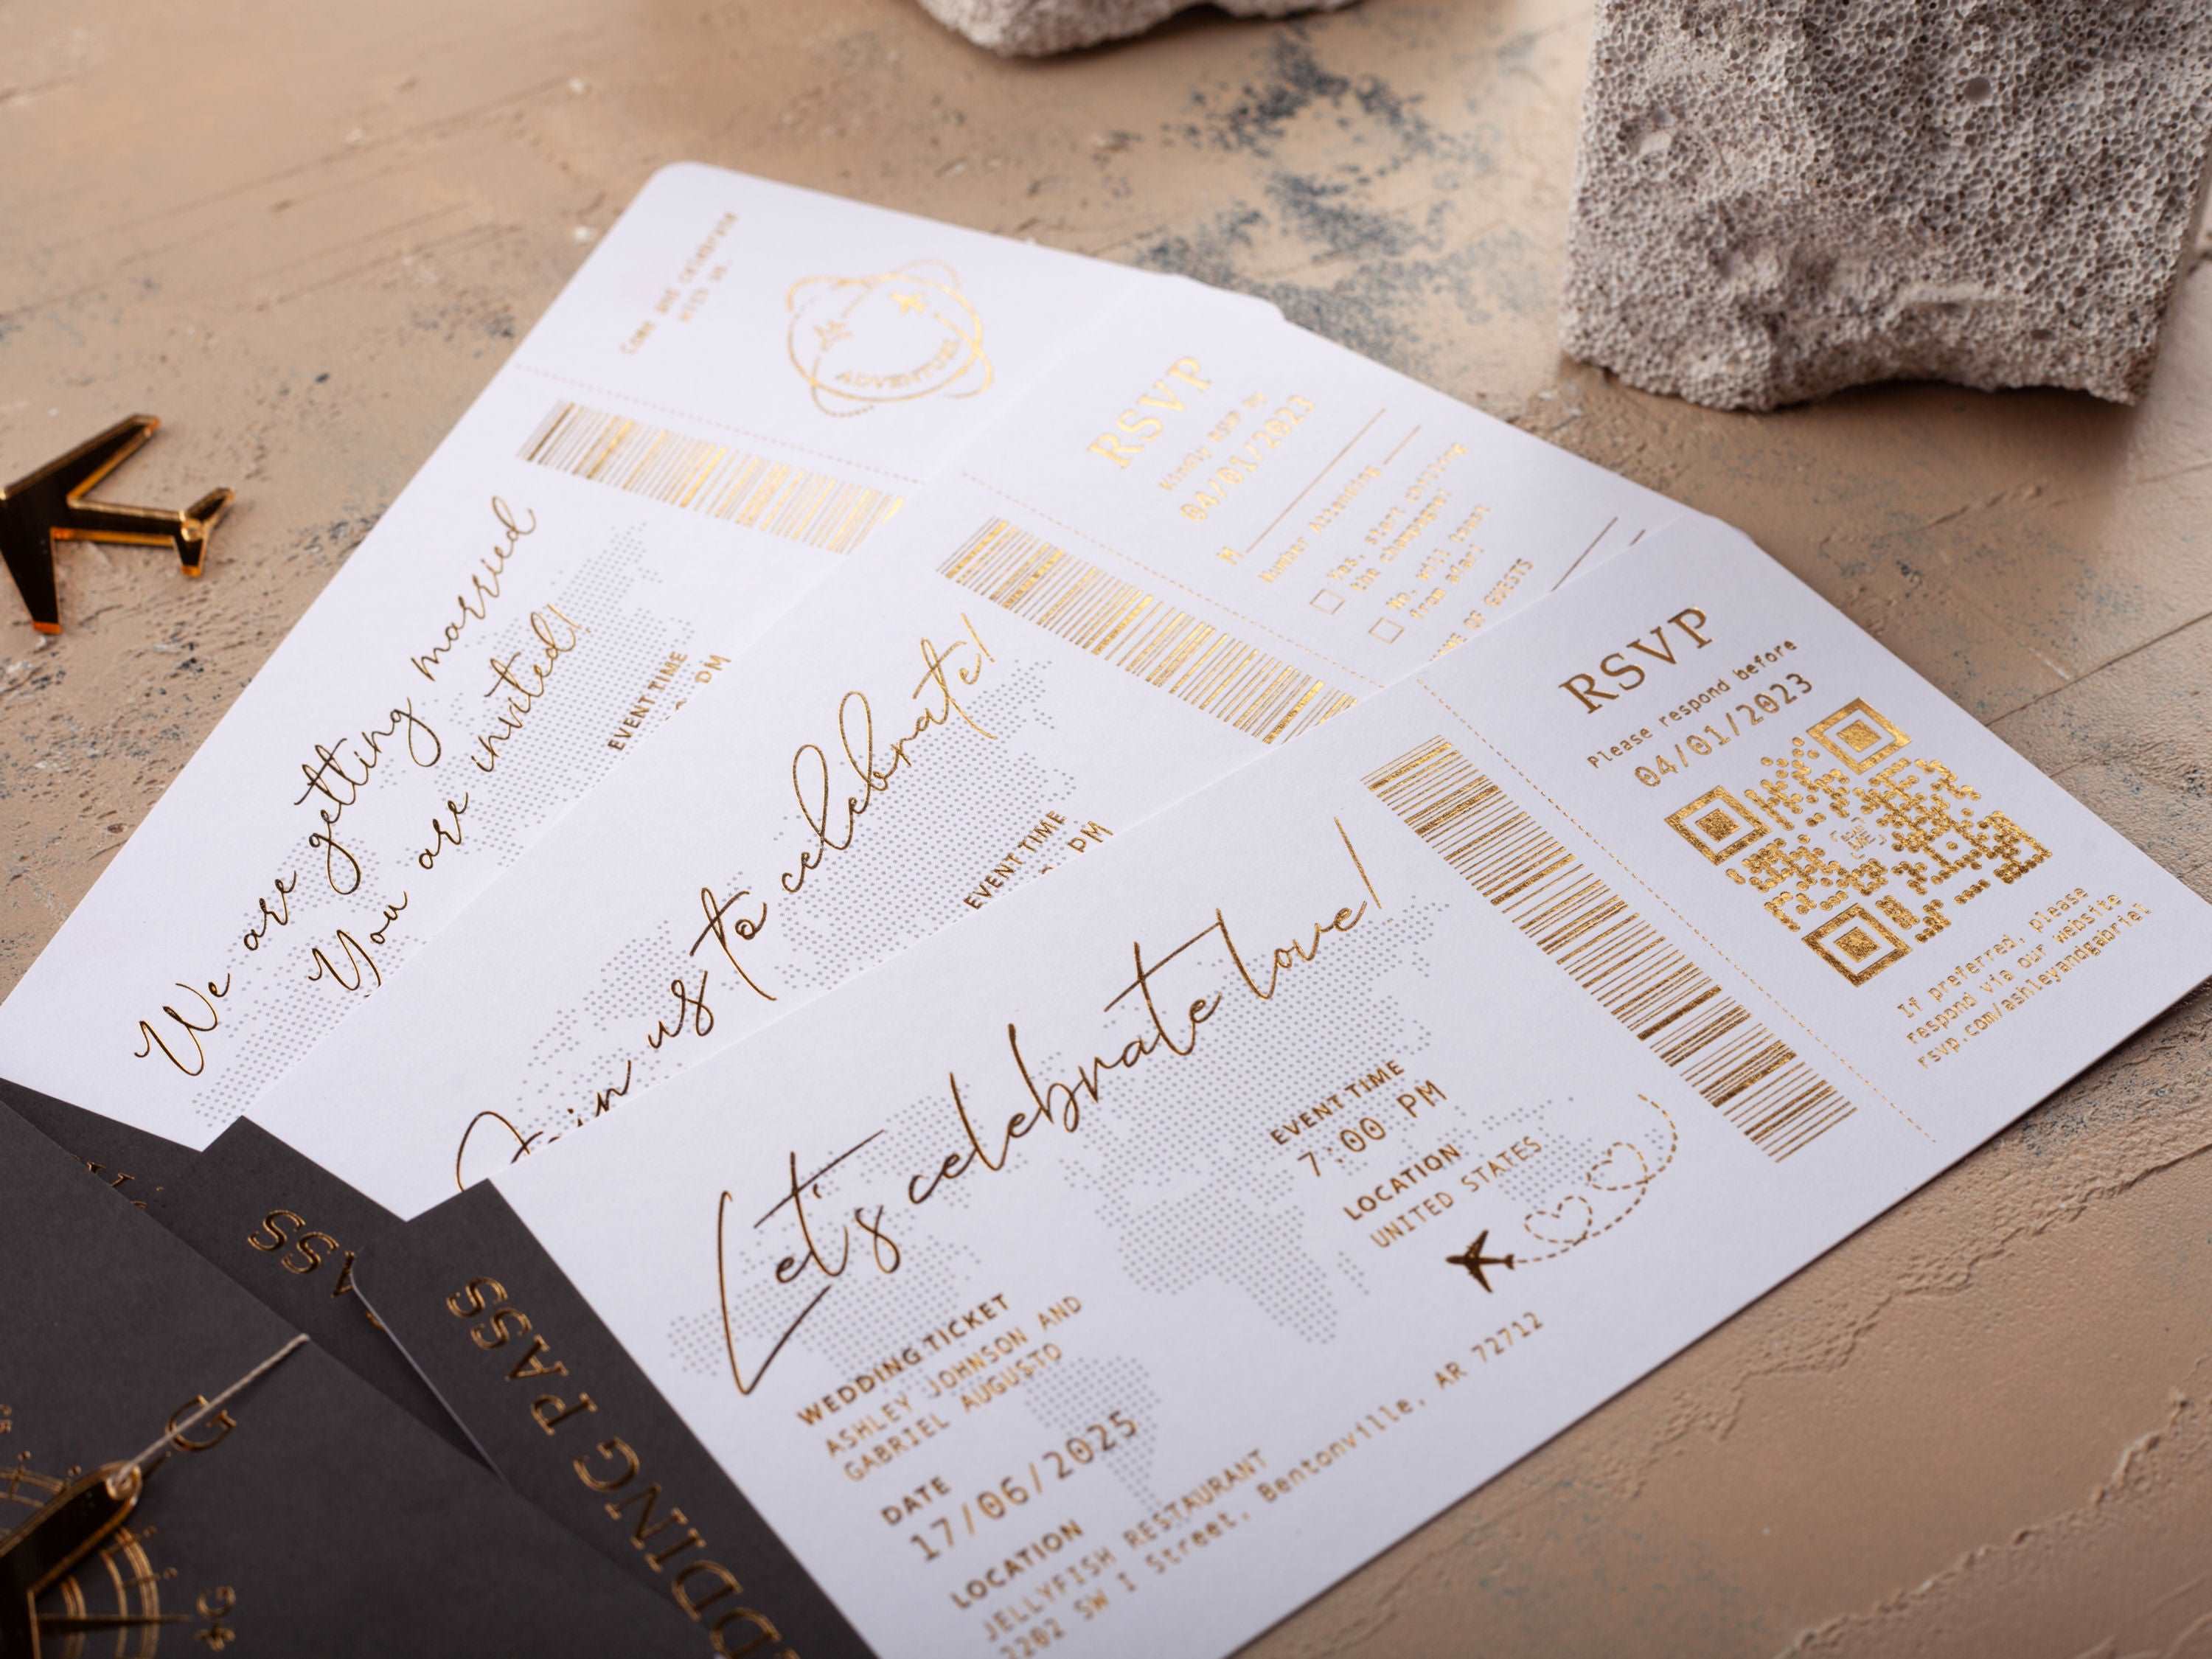 Come and celebrate
with us.
ADVENTURE
We are getting married
You are invited!
EVENT TIME
PM
RSVP
Kindly RSVP by
04/01/2023
M
Number Attending
Yes, start chilling
the champagne!
No, will toast
from afar!
OF GUESTS
Join us to celebrate!
EVENT TIME
PM
RSVP
Please respond before
04/01/2023
If preferred, please
respond via our website
rsvp.com/ashleyandgabriel
Let's celebrate love!
EVENT TIME
7:00 PM
LOCATION
UNITED STATES
WEDDING TICKET
ASHLEY JOHNSON AND
GABRIEL AUGUSTO
DATE
17/06/2025
LOCATION
JELLYFISH RESTAURANT
2202 SW I Street, Bentonville, AR 72712
ASS
DDING PASS
G